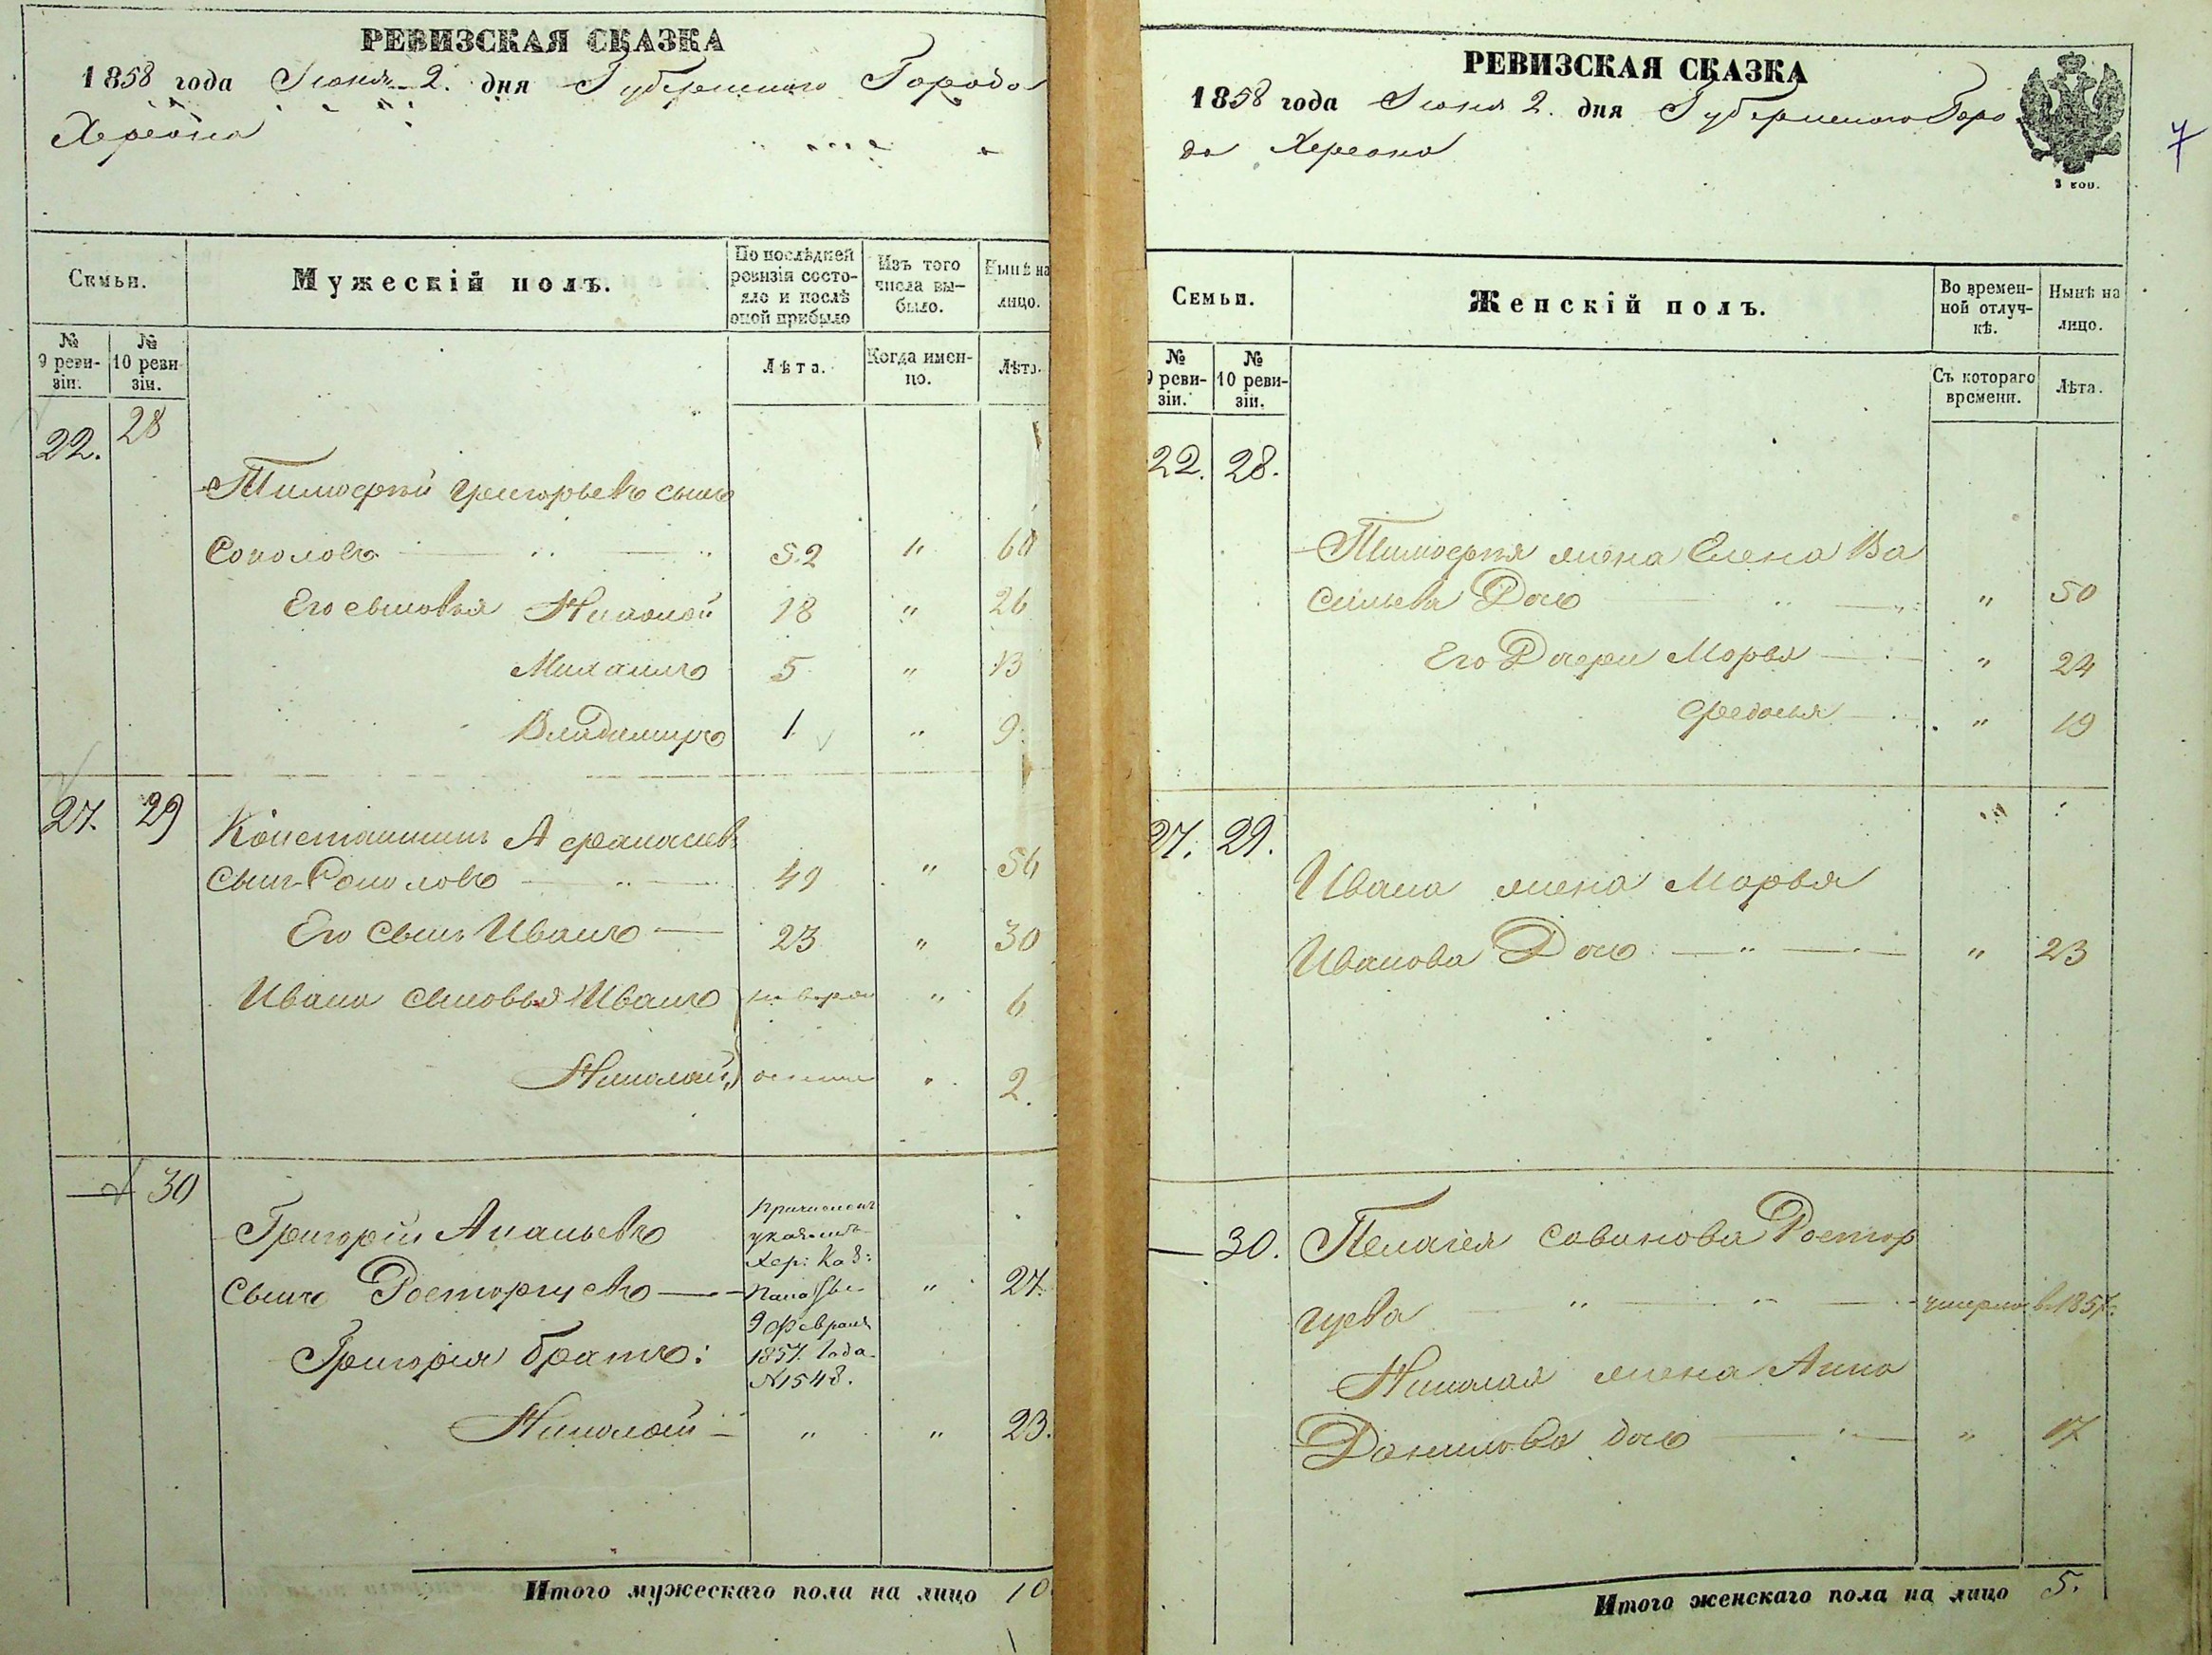 РЕВИЗСКАЯ СКАЗКА
1858 года Июня 2. дня Губернского Города
Херсона
Семьи.
Мужескій полъ.
По послѣдней ревизіи состояло и послѣ оной прибыло
Изъ того числа выбыло.
Нынѣ на лицо.
№ 9 ревизіи.
№ 10 ревизіи.
Лѣта.
Когда именно.
Лѣта.
22. 28
Тимофей Григорьевъ сынъ
Соколовъ 52 " 60
Его сыновья Николай 18 " 26
Михаилъ 5 " 13
Владимиръ 1 " 9
27. 29
Константинъ Афанасьевъ
Сынъ Соколовъ 49 " 56
Его Сынъ Иванъ 23 " 30
Ивана сыновья Иванъ " 6
Николай " 2.
30
Григорій Ананьевъ
Сынъ Росторгуевъ " 27.
Причислен
указомъ
Хер: Каз:
Палаты
9 Февраля
1857. Года
№1548.
Григорія братъ:
Николай " " 23.
Итого мужескаго пола на лицо 10
РЕВИЗСКАЯ СКАЗКА
1858 года Июня 2. дня Губернского Горо
да Херсона
3 коп.
7
Семьи.
Женскій полъ.
Во временной отлучкѣ.
Нынѣ на лицо.
№ 9 ревизіи.
№ 10 ревизіи.
Съ котораго времени.
Лѣта.
22. 28.
Тимофея жена Елена Ва
сильева Дочь " 50
Его Дочери Марья " 24
Федосья " 19
27. 29.
Ивана жена Марья
Иванова Дочь " 23
30. Пелагея Саванова Ростор
гуева умерла в 1857.
Николая жена Анна
Данилова дочь " 17
Итого женскаго пола на лицо 5.